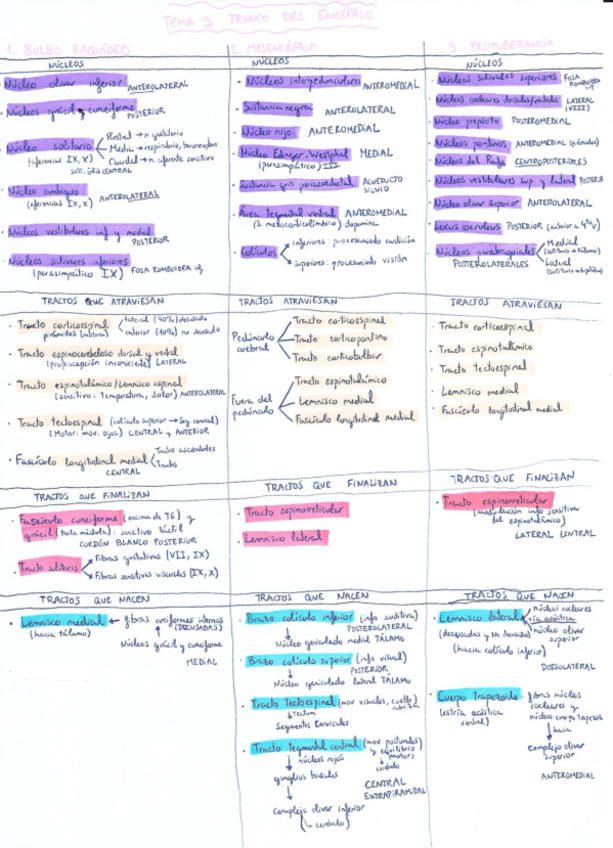 TEMA 3 TRONCO DEL ENCÉFALO
1. BULBO RAQUÍDEO
NÚCLEOS
Núcleo olivar inferior ANTEROLATERAL
Núcleos grácil y cuneiforme
POSTERIOR
Núcleo solitario
Rostral → n gustatorio
Media → respiratorio,
Caudal → n aferente sensitivo
(aferencias IX, X)
SUST. GRIS CENTRAL
Núcleo ambiguo
(eferencias IX, X) ANTEROLATERAL
Núcleos vestibulares inf y medial
POSTERIOR
Núcleos salivares inferiores
(parasimpático IX) FOSA ROMBOIDEA
TRACTOS QUE ATRAVIESAN
Tracto corticoespinal
lateral (90%) decusado
anterior (10%) no decusado
Tracto espinocerebeloso dorsal y ventral
(propiocepción inconsciente) LATERAL
Tracto espinotalámico / Lemnisco espinal
(sensitivo: Temperatura, dolor) ANTEROLATERAL
Tracto tectoespinal (colículo superior → Seg cervical)
(Motor: mov. ojos) CENTRAL y ANTERIOR
Fascículo longitudinal medial
Tractos ascendentes
CENTRAL
TRACTOS QUE FINALIZAN
Fascículo cuneiforme (encima de T6) y
grácil (toda médula): sensitivo táctil
CORDÓN BLANCO POSTERIOR
Tracto solitario
Fibras gustativas (VII, IX)
Fibras sensitivas viscerales (IX, X)
TRACTOS QUE NACEN
Lemnisco medial ← fibras arciformes internas
(DECUSADAS)
(hacia tálamo)
Núcleos grácil y cuneiforme
MEDIAL
2. MESENCÉFALO
NÚCLEOS
Núcleos interpeduncular ANTEROMEDIAL
Sustancia negra ANTEROLATERAL
Núcleo rojo ANTEROMEDIAL
Núcleo Edinger-Westphal MEDIAL
(parasimpático)
Sustancia gris periacueductal ACUEDUCTO
SILVIO
Área tegmental ventral ANTEROMEDIAL
(s. mesocorticolímbico) dopamina
Colículos
inferiores: procesamiento audición
superiores: procesamiento visión
TRACTOS ATRAVIESAN
Pedúnculo
cerebral
Tracto corticoespinal
Tracto corticopontino
Tracto corticobulbar
Fuera del
pedúnculo
Tracto espinotalámico
Lemnisco medial
Fascículo longitudinal medial
TRACTOS QUE FINALIZAN
Tracto espinorreticular
Lemnisco lateral
TRACTOS QUE NACEN
Brazo colículo inferior (info auditiva)
POSTEROLATERAL
Núcleo geniculado medial TÁLAMO
Brazo colículo superior (info visual)
POSTERIOR
Núcleo geniculado lateral TÁLAMO
Tracto tectoespinal (mov visuales, cuello
tectum
Segmentos Cervicales
Tracto tegmental central (mov posturales
y equilibrio
motor)
núcleos rojos
cerebelo
ganglios basales
CENTRAL
EXTRAPIRAMIDAL
complejo olivar inferior
(→ cerebelo)
3. PROTUBERANCIA
NÚCLEOS
Núcleos salivales superiores FOSA
ROMBOIDEA
Núcleos cocleares dorsales/ventrales LATERAL
(VIII)
Núcleo prepósito POSTEROMEDIAL
Núcleos pontinos ANTEROMEDIAL
Núcleos del Rafe CENTROPOSTERIORES
Núcleos vestibulares sup. y lateral
Núcleo olivar superior ANTEROLATERAL
Locus coeruleus POSTERIOR
Núcleos parabraquiales
POSTEROLATERALES
Medial
(solitario → tálamo)
Lateral
TRACTOS ATRAVIESAN
Tracto corticoespinal
Tracto espinotalámico
Tracto tectoespinal
Lemnisco medial
Fascículo longitudinal medial
TRACTOS QUE FINALIZAN
Tracto espinorreticular
(modulación info sensitiva
del espinotalámico)
LATERAL VENTRAL
TRACTOS QUE NACEN
Lemnisco lateral
núcleos cocleares
vía acústica
núcleo olivar
superior
(decusadas y No decusadas)
(hacia colículo inferior)
DORSOLATERAL
Cuerpo Trapezoide
fibras núcleos
cocleares y
núcleo cuerpo trapez
(estría acústica
ventral)
hacia
complejo olivar
superior
ANTEROMEDIAL